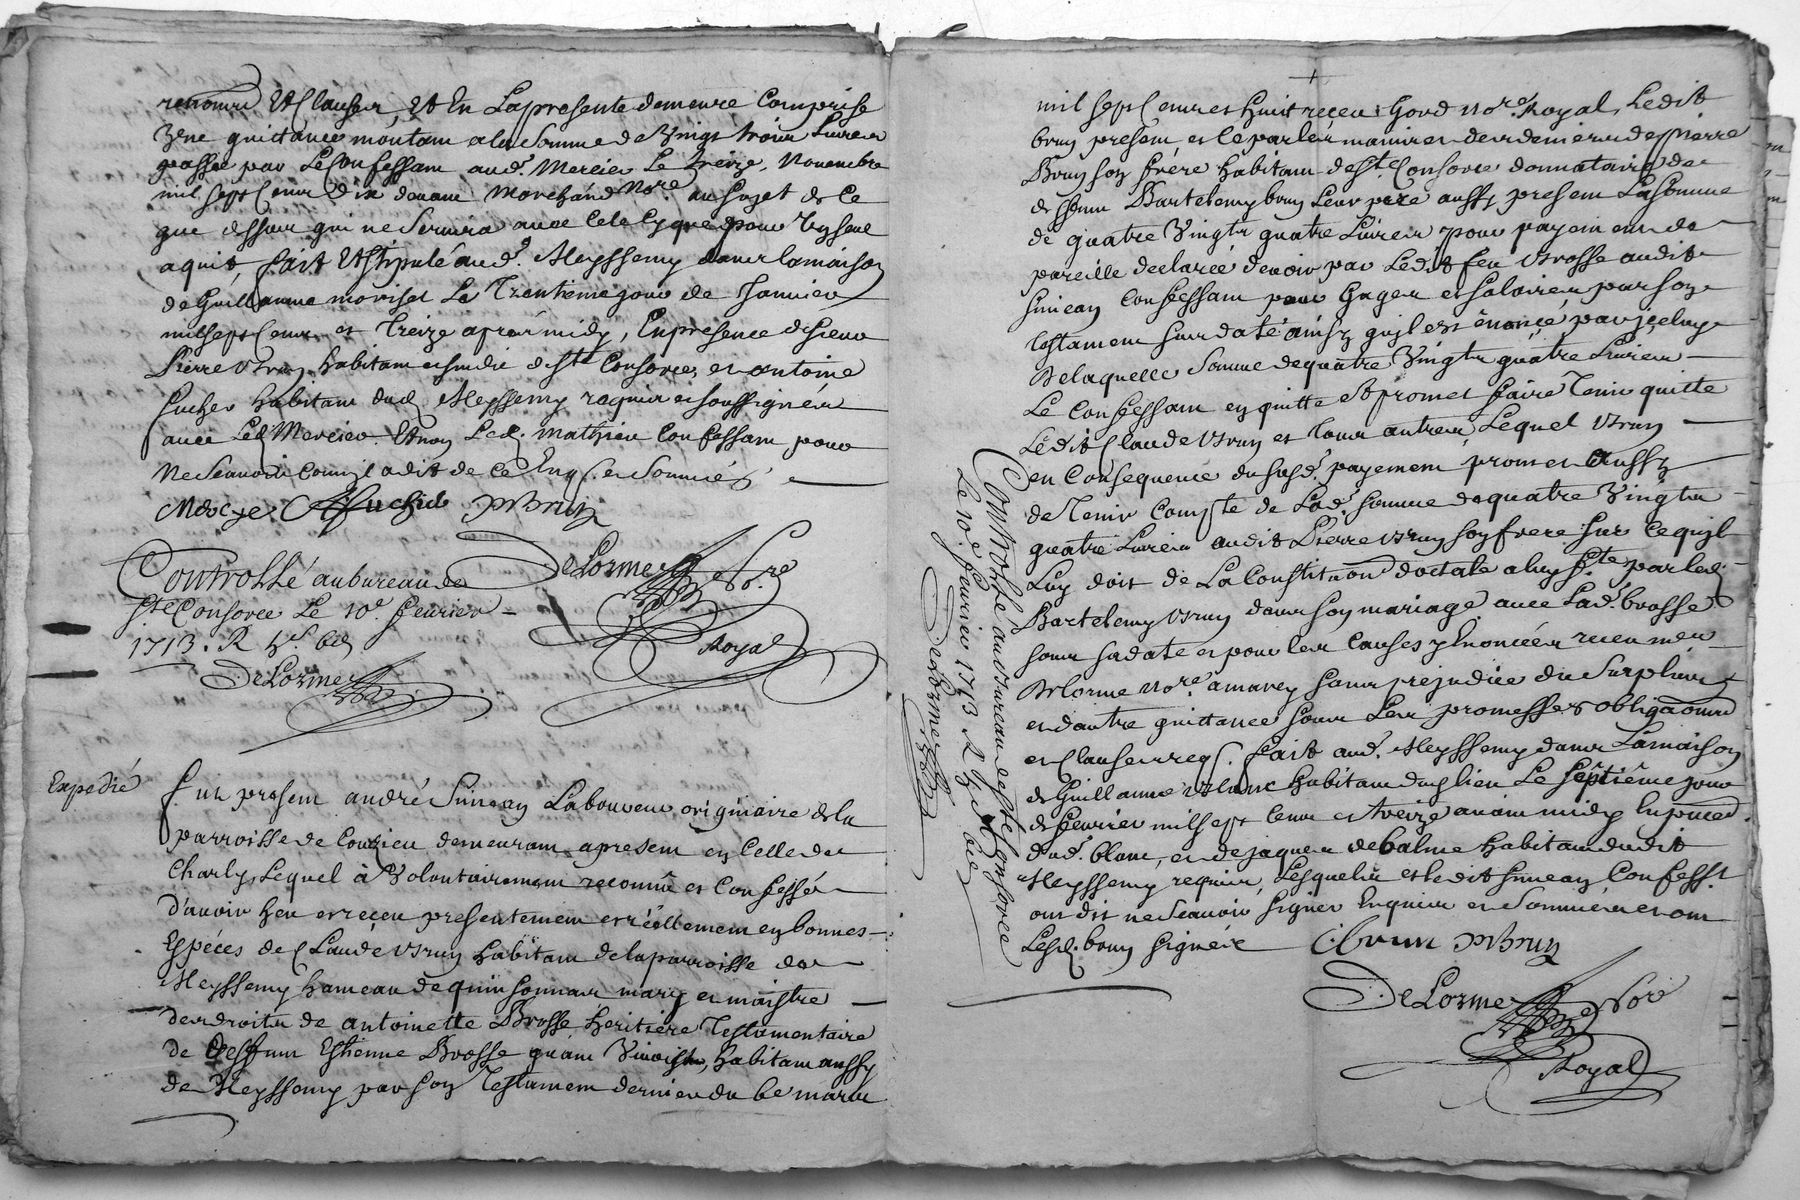 renonce Et Clauses, Et En La presente demeure Comprise
Une quittance montant a la Somme de Vingt trois Livres
passée par Le Confessant aud. Mercier Le treize Novembre
mil sept Cents dix devant Marchand No.re au sujet de Ce
que dessus qui ne Servira avec Celle Cy que pour Un seul
aquit, fait Et Stipulé aud. Meyssemy dans la maison
de Guillaume morisel Le Trentieme jour de Janvier
mil sept Cents et Treize apres midy, En presence de sieur
Pierre Brun habitant et scindic de Ste Consorce, et antoine
fucher habitant dud. Meyssemy requis et soussignés
avec Led. Mercier Et non Led. mathieu Confessant pour
ne Scavoir Comm'il a dit de Ce Enq. et Sommés
fuchet PBrun
Controllé au bureau de
DeLorme No.re
Ste Consorce Le 10e fevrier
1713. R
Royal
DeLorme
Expedié
Fut present andré Simean Laboureur originaire de la
parroisse de Courzieu demeurant a present en Celle de
Charly, Lequel à Volontairement reconnû et Confessé
D'avoir heu et receu presentement et réellement en bonnes
Espéces de Claude Brun habitant de la parroisse de
Meyssemy hameau de quinsonnas mary et maistre
des droits de antoinette Brosse heritière Testamentaire
de deffunt Estienne Brosse quand Vivoit, habitant aussy
de Meyssemy par son Testament dernier du 6e mars
mil sept Cents et huit receu Gord No.re Royal, Ledit
brun present, et Ce par les maines et des deniers de Pierre
Brun son frère habitant de Ste Consorce donnataire de
deffunt Bartelemy brun Leur pere aussy present La Somme
de quatre Vingts quatre Livres pour payement de
pareille declarée devoir par Ledit feu Brosse audit
Simean Confessant pour Gages et Salaires par son
testament sus daté ainsy qu'il est énoncé par jceluy
De laquelle Somme de quatre Vingts quatre Livres
Le Confessant en quitte Et promet faire Tenir quitte
Ledit Claude Brun et tous autres, Lequel Brun
en Consequence du susd. payement promet Aussy
de Tenir Compte de Lad. Somme de quatre Vingts
quatre Livres audit Pierre Brun son frere sur Ce qu'il
Luy doit de La Constitution doctale a luy f.te par led.
Bartelemy Brun dans son mariage avec Lad. brosse
sous sa date et pour les Causes y Enoncées receu me
Delorme No.re a marcy sans prejudice du Surplus
et d'autre quittance sous Les promesses obligaôns
et Clauses req. fait aud. Meyssemy dans La maison
de Guillaume Blanc habitant dud. lieu Le septiême jour
de fevrier mil sept Cents et treize avant midy En pnce
dud. blanc, et de jaques debalme habitant dudit
Meyssemy requis, Lesquels et ledit Simean Confess.t
ont dit ne Scavoir Signer Enquis et Sommés et ont
Lesd. brun Signéz Cbrun PBrun
DeLorme No.re
Royal
Controllé au bureau de Ste Consorce
Le 10e fevrier 1713 R
DeLorme